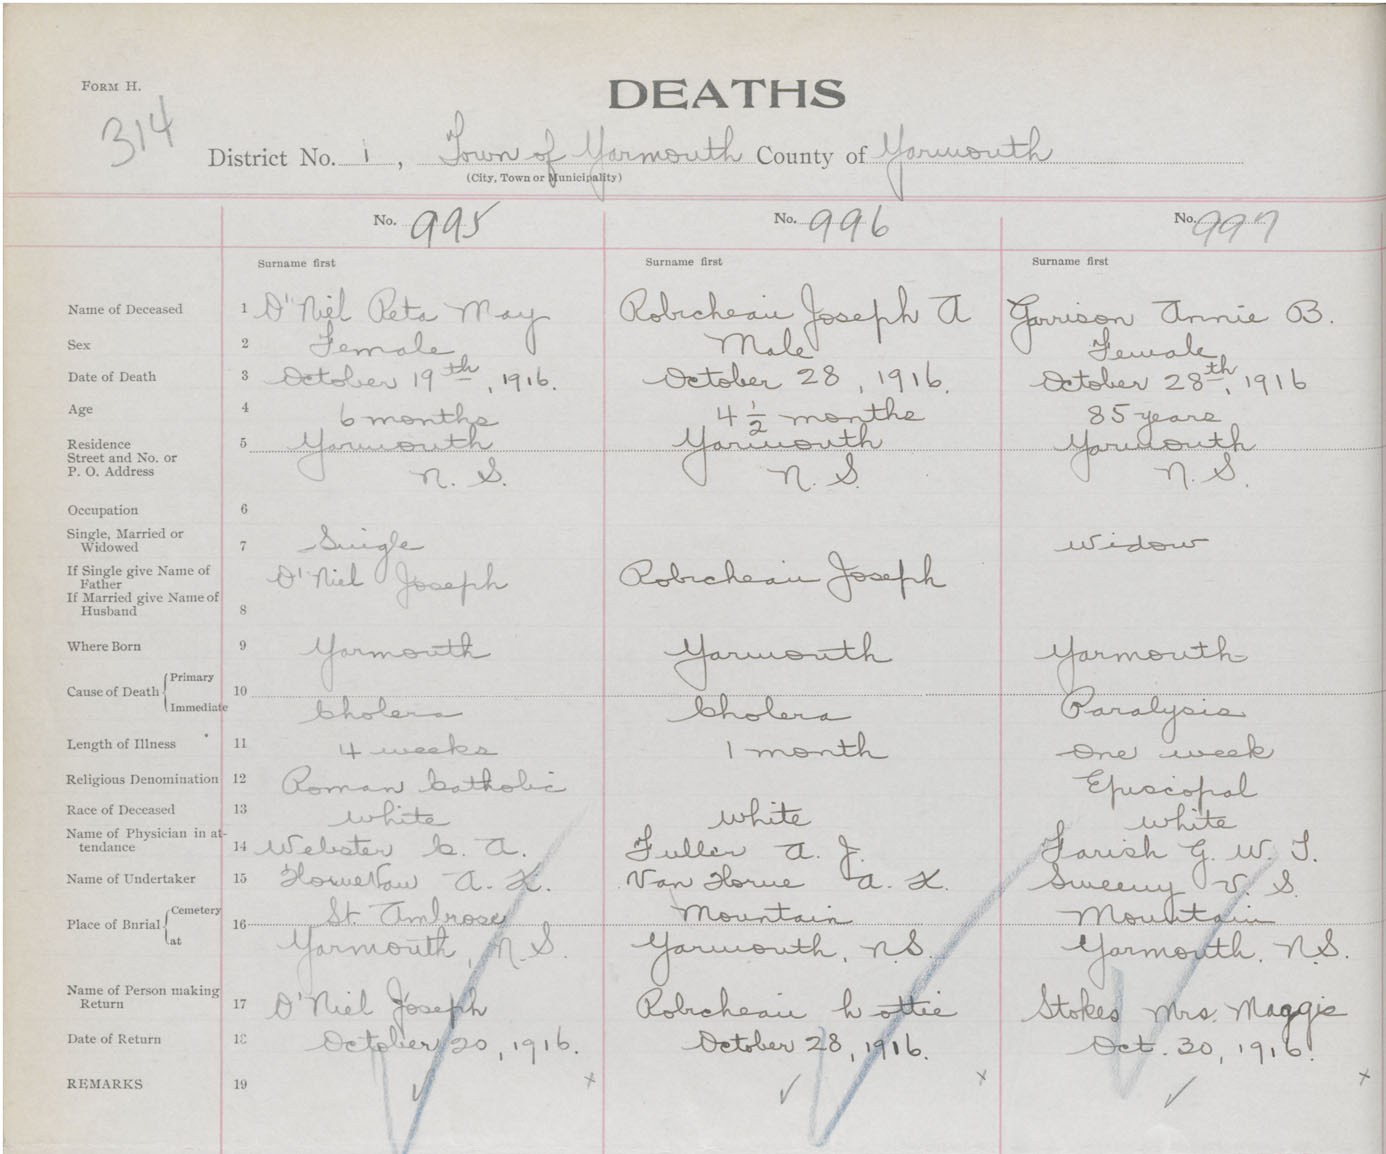 FORM H.
DEATHS
314
District No. 1, Town of Yarmouth County of Yarmouth
(City, Town or Municipality)
No. 995 No. 996 No. 997
Surname first Surname first Surname first
Name of Deceased 1 O'Niel Reta May Robicheau Joseph A Garrison Annie B.
Sex 2 Female Male Female
Date of Death 3 October 19th, 1916. October 28, 1916. October 28th, 1916
Age 4 6 months 4 1/2 months 85 years
Residence 5 Yarmouth Yarmouth Yarmouth
Street and No. or
P. O. Address N. S. N. S. N. S.
Occupation 6
Single, Married or
Widowed 7 Single Widow
If Single give Name of
Father O'Niel Joseph Robicheau Joseph
If Married give Name of
Husband 8
Where Born 9 Yarmouth Yarmouth Yarmouth
Primary
Cause of Death 10
Immediate Cholera Cholera Paralysis
Length of Illness 11 4 weeks 1 month One week
Religious Denomination 12 Roman Catholic Episcopal
Race of Deceased 13 white white white
Name of Physician in at-
tendance 14 Webster C. A. Fuller A. J. Farish G. W. T.
Name of Undertaker 15 A. K. Van Horne A. K. Sweeny V. S.
Cemetery St. Ambrose Mountain Mountain
Place of Burial 16
at Yarmouth, N.S. Yarmouth, N.S. Yarmouth, N.S.
Name of Person making
Return 17 O'Niel Joseph Robicheau Lottie Stokes Mrs. Maggie
Date of Return 18 October 20, 1916. October 28, 1916. Oct. 30, 1916.
REMARKS 19 ✓ x ✓ x ✓ x